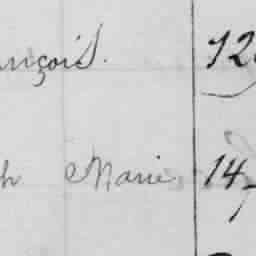 ançois. 12
h Marie 14